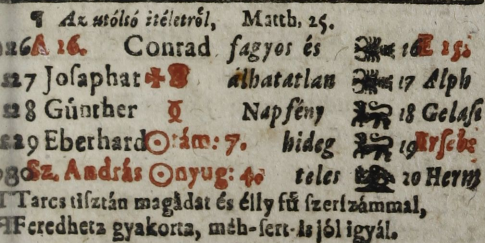 ¶ Az utólsó itéletről, Matth. 25.
26 A 26. Conrad fagyos és 16 E 25.
27 Josaphat álhatatlan 17 Alph
28 Günther Napfény 18 Gelase
29 Eberhard ☉ tám: 7. hideg 19 Ersebe
30 Sz. András ☉ nyug: 4. teles 20 Herm
Tarcs tisztán magàdat és élly fű szerszámmal,
Feredhetz gyakorta, méh-sert-is jól igyál.